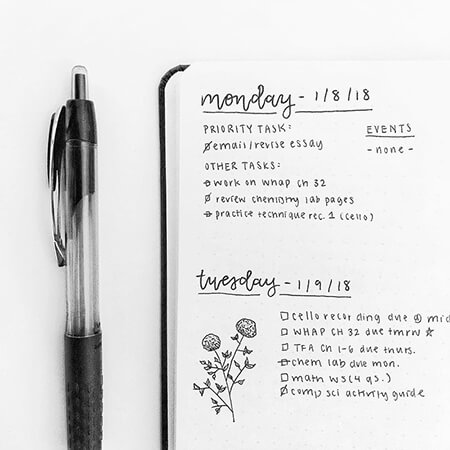 monday - 1/8/18
PRIORITY TASK:
email/revise essay
EVENTS
- none -
OTHER TASKS:
work on WHAP ch 32
review chemistry lab pages
practice technique rec. 1 (cello)
tuesday - 1/9/18
cello recording due @ mid
WHAP CH 32 due tmrw ☆
TFA Ch 1-6 due thurs.
chem lab due mon.
math WS (4 qs.)
comp sci activity guide